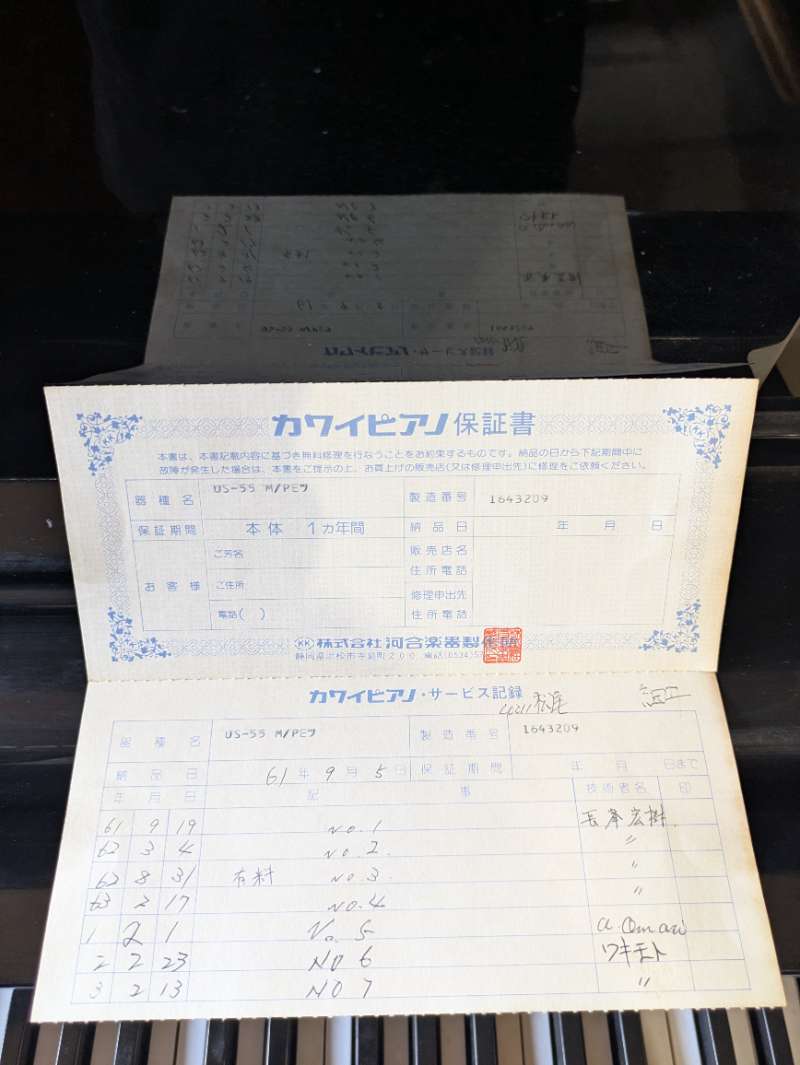 カワイピアノ 保証書
本書は、本書記載内容に基づき無料修理を行なうことをお約束するものです。納品の日から下記期間中に
故障が発生した場合は、本書をご提示の上、お買上げの販売店(又は修理申出先)に修理をご依頼ください。
器種名 US-55 M/PEツ 製造番号 1643209
保証期間 本体 1カ年間 納品日 年 月 日
お客様 ご芳名 販売店名
住所電話
ご住所 修理申出先
電話( ) 住所電話
KK 株式会社 河合楽器製作所
静岡県浜松市寺島町200
カワイピアノ・サービス記録
器種名 US-55 M/PEツ 製造番号 1643209
納品日 61年9月5日 保証期間 年 月 日まで
年 月 日 記事 技術者名 印
61 9 19 NO.1
62 3 4 NO.2. 〃
62 8 31 有料 NO.3. 〃
63 2 17 NO.4 〃
1 2 1 No.5 a. Omori
2 2 23 NO 6 ワキモト
3 2 13 NO 7 〃